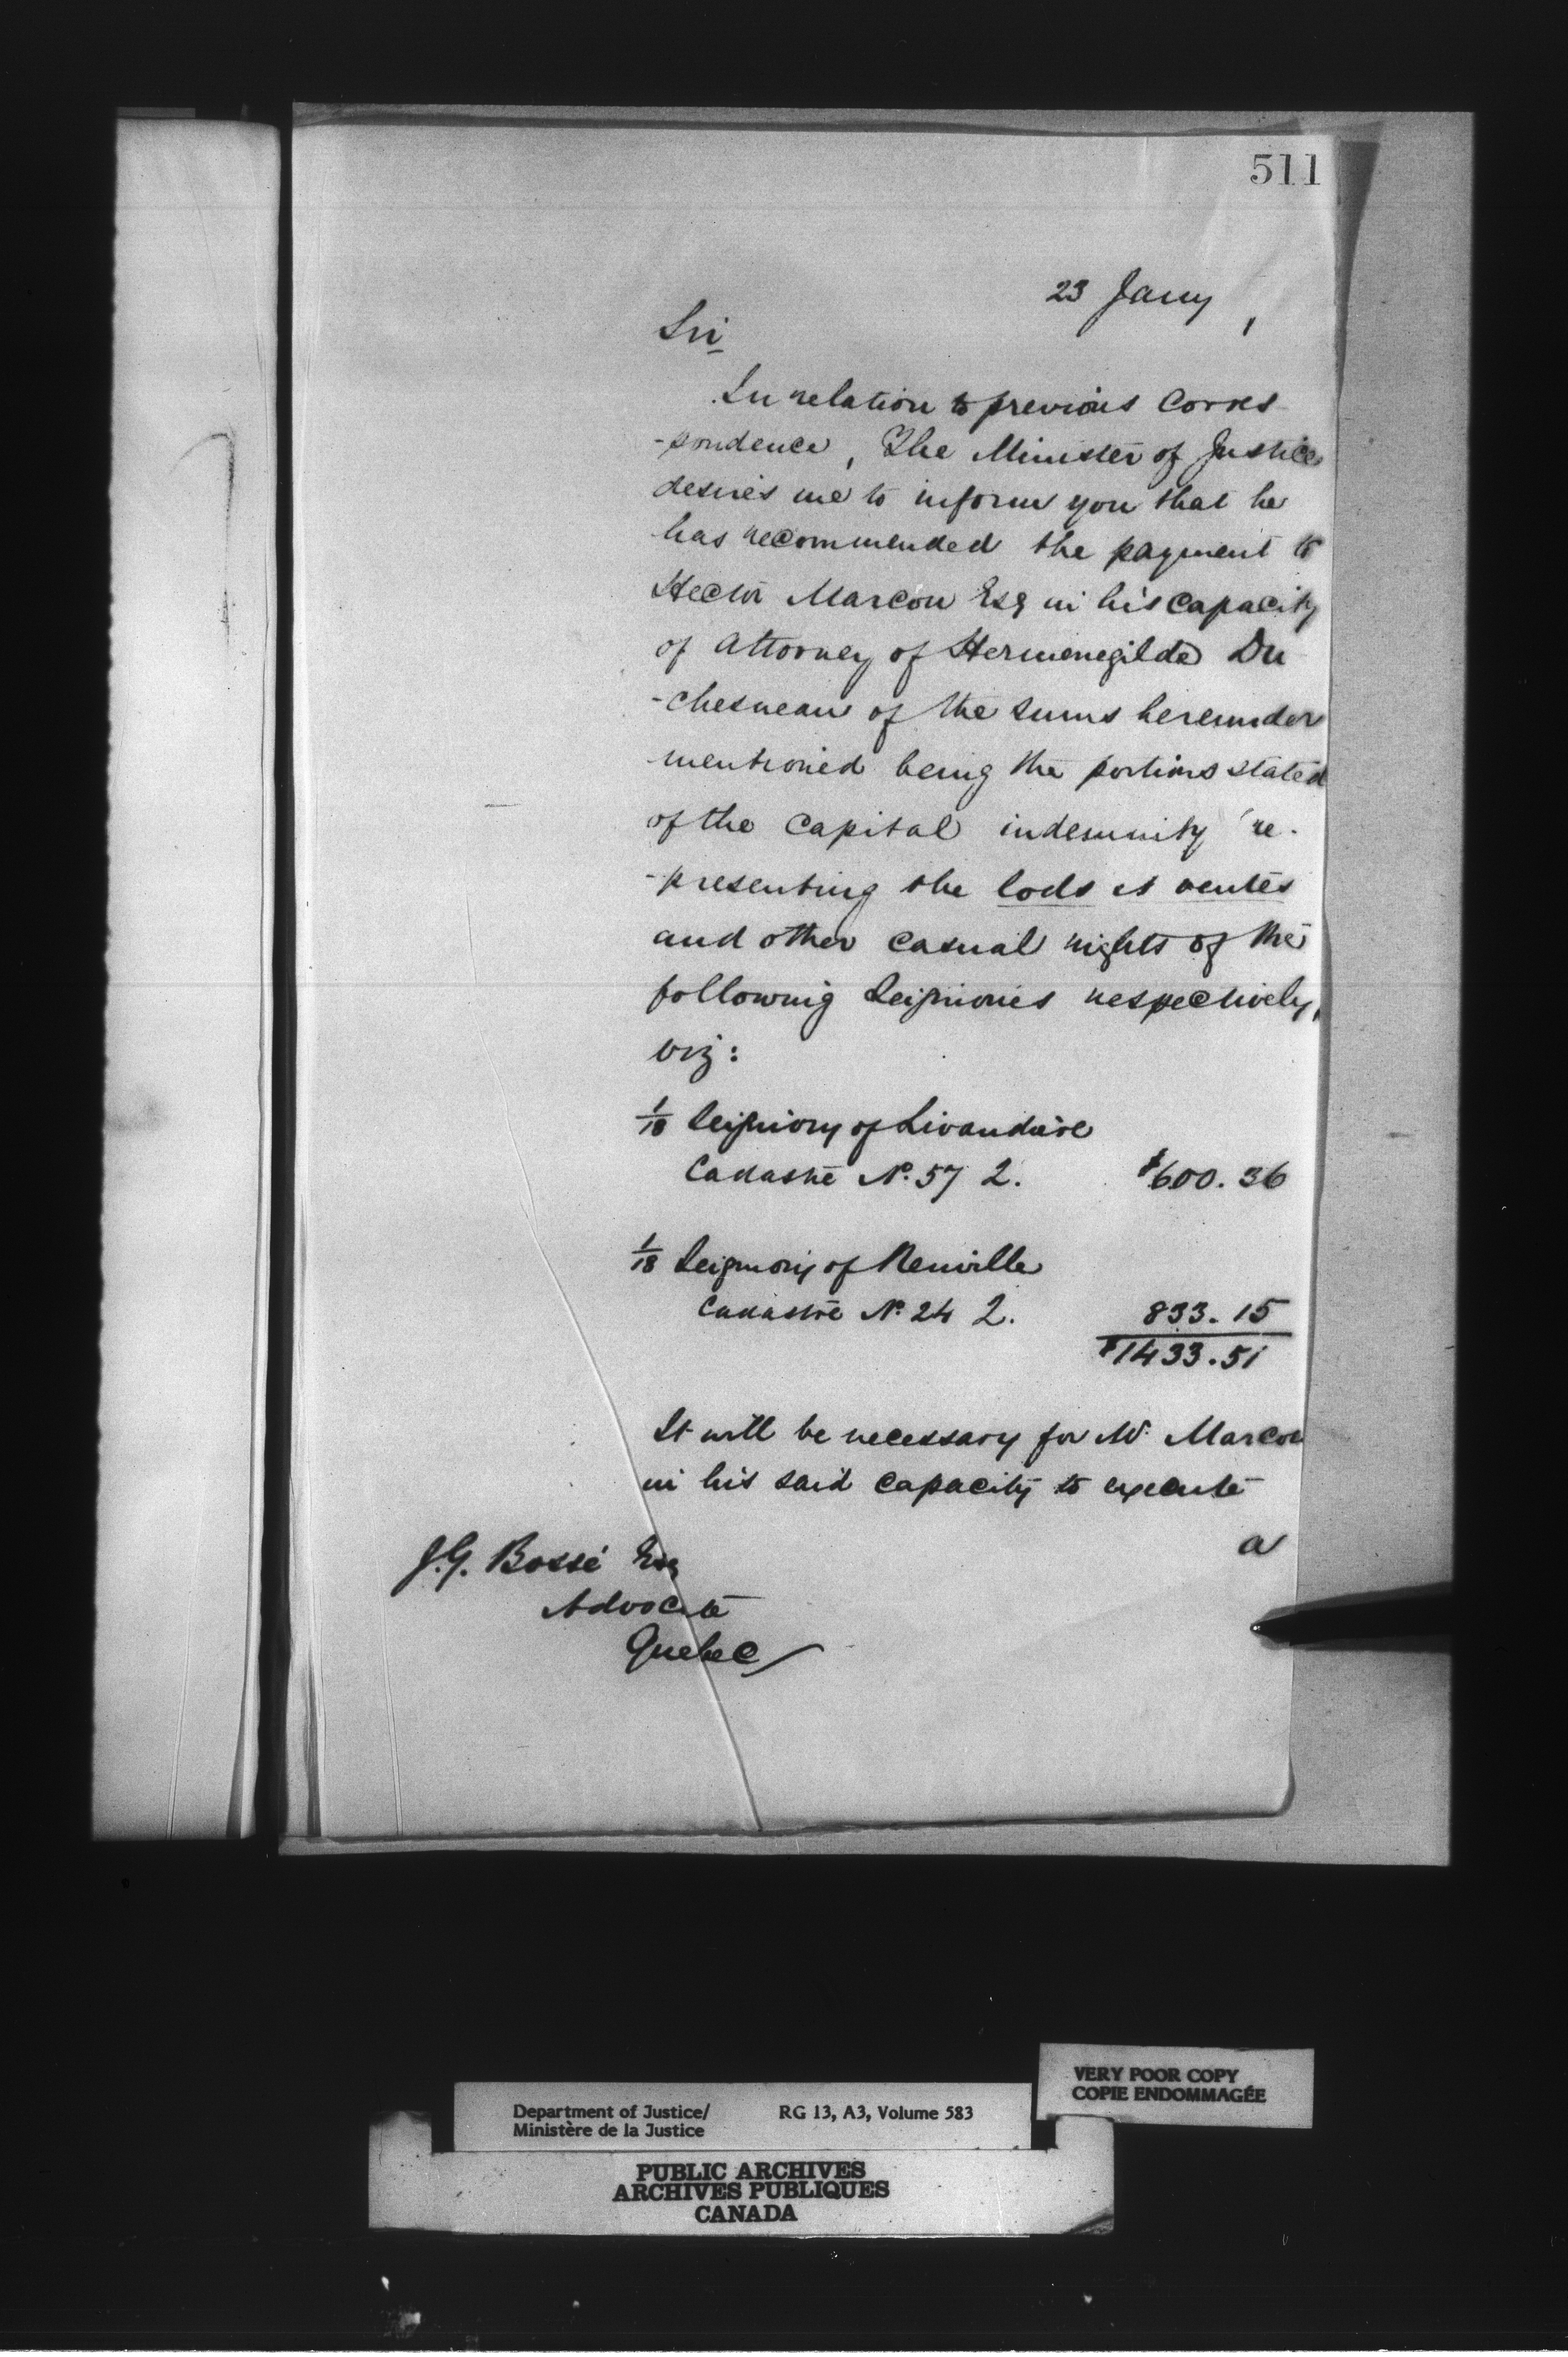 511
23 Jany
Sir
In relation to previous Corres
-pondence, The Minister of Justice
desires me to inform you that he
has recommended the payment to
Hector Marcou Esq in his capacity
of Attorney of Hermenegilde Du
-chesneau of the sums hereunder
mentioned being the portions stated
of the Capital indemnity re-
-presenting the lods et ventes
and other casual rights of the
following Seigniories respectively,
viz:
1/18 Seigniory of Livaudière
Cadastre No. 57 2. $600.36
1/18 Seigniory of Neuville
Cadastre No. 24 2. 833.15
$1433.51
It will be necessary for Mr. Marcou
in his said capacity to execute
a
J.G. Bossé Esq
Advocate
Quebec
VERY POOR COPY
COPIE ENDOMMAGÉE
Department of Justice/ RG 13, A3, Volume 583
Ministère de la Justice
PUBLIC ARCHIVES
ARCHIVES PUBLIQUES
CANADA